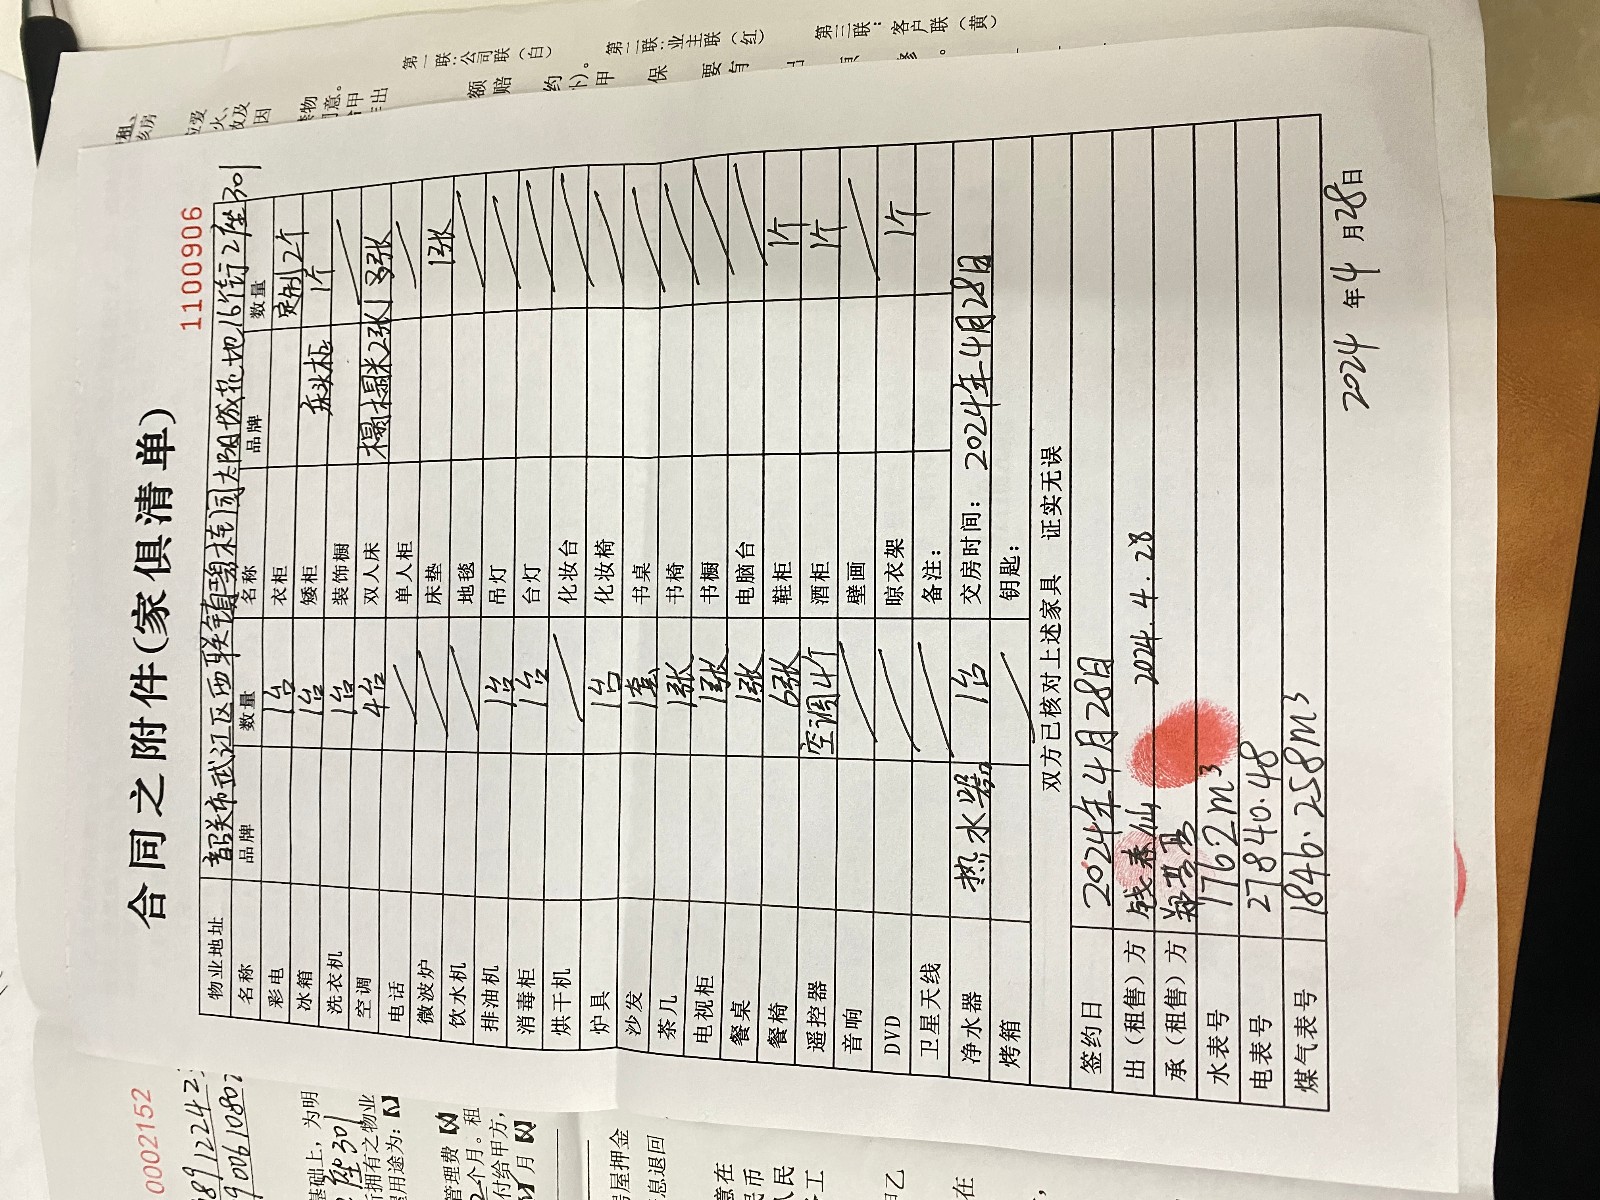 合同之附件(家俱清单)
1100906
物业地址 韶关市武江区西联镇碧桂园太阳城花地16街2座301
名称 品牌 数量 名称 品牌 数量
彩电 1台 衣柜 定制2个
冰箱 1台 矮柜 床头柜 1个
洗衣机 1台 装饰橱
空调 4台 双人床 榻榻米2张 3张
电话 单人柜
微波炉 床垫 1张
饮水机 地毯
排油机 1台 吊灯
消毒柜 1台 台灯
烘干机 化妆台
炉具 1台 化妆椅
沙发 1套 书桌
茶几 1张 书椅
电视柜 1张 书橱
餐桌 1张 电脑台
餐椅 6张 鞋柜 1个
遥控器 空调4个 酒柜 1个
音响 壁画
DVD 晾衣架 1个
卫星天线 备注:
净水器 热水器 1台 交房时间: 2024年4月28日
烤箱 钥匙:
双方已核对上述家具 证实无误
签约日 2024年4月28日
出(租售)方 2024.4.28
承(租售)方
水表号 1762m3
电表号 27840.48
煤气表号 1846.258m3
2024年4月28日
第一联:公司联(白)
第二联:业主联(红)
第三联:客户联(黄)
0002152